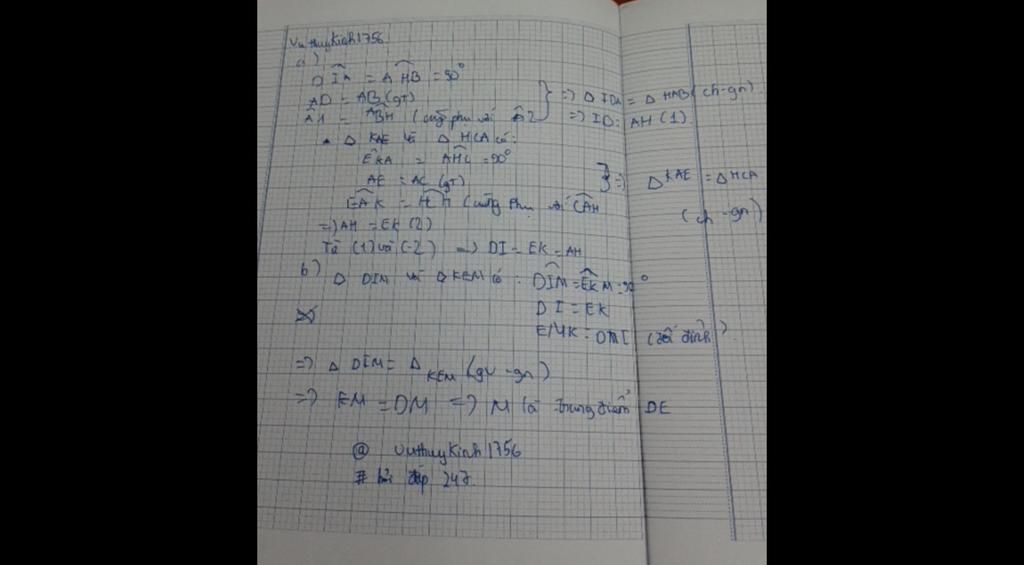 Vuthuykinh1756
a)
DIA = AHB = 90°
AD = AB (gt)
A1 = ABH (cùng phụ với A2 } => Δ IDA = Δ HAB (ch-gn)
=> ID = AH (1)
Δ KAE và Δ HCA có:
EKA = AHC = 90°
AE = AC (gt) } => Δ KAE = Δ HCA
EAK = (cùng phụ với CAH (ch-gn)
=> AH = EK (2)
Từ (1) và (2) => DI = EK = AH
b) Δ DIM và Δ KEM có: DIM = EKM = 90°
DI = EK
EMK = DMI (đối đỉnh)
=> Δ DIM = Δ KEM (gv-gn)
=> EM = DM => M là trung điểm DE
@ vuthuykinh1756
# hỏi đáp 247